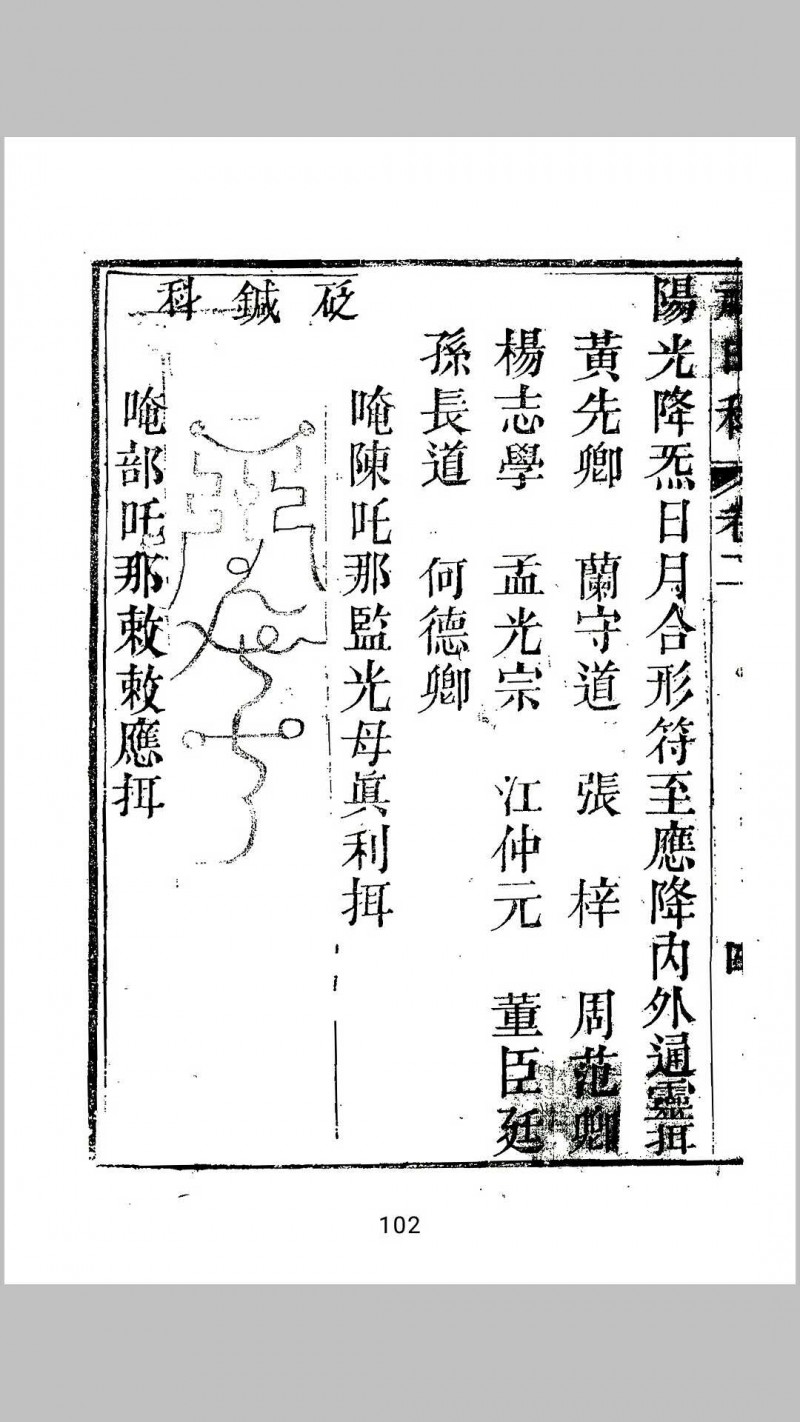 祝由科 卷二
陽光降炁日月合形符至應降內外通靈挕
黃先卿 蘭守道 張 梓 周范卿
楊志學 孟光宗 江仲元 董臣廷
孫長道 何德卿
砭鍼科
唵陳吒那監光母眞利挕
唵部吒那敕敕應挕
102